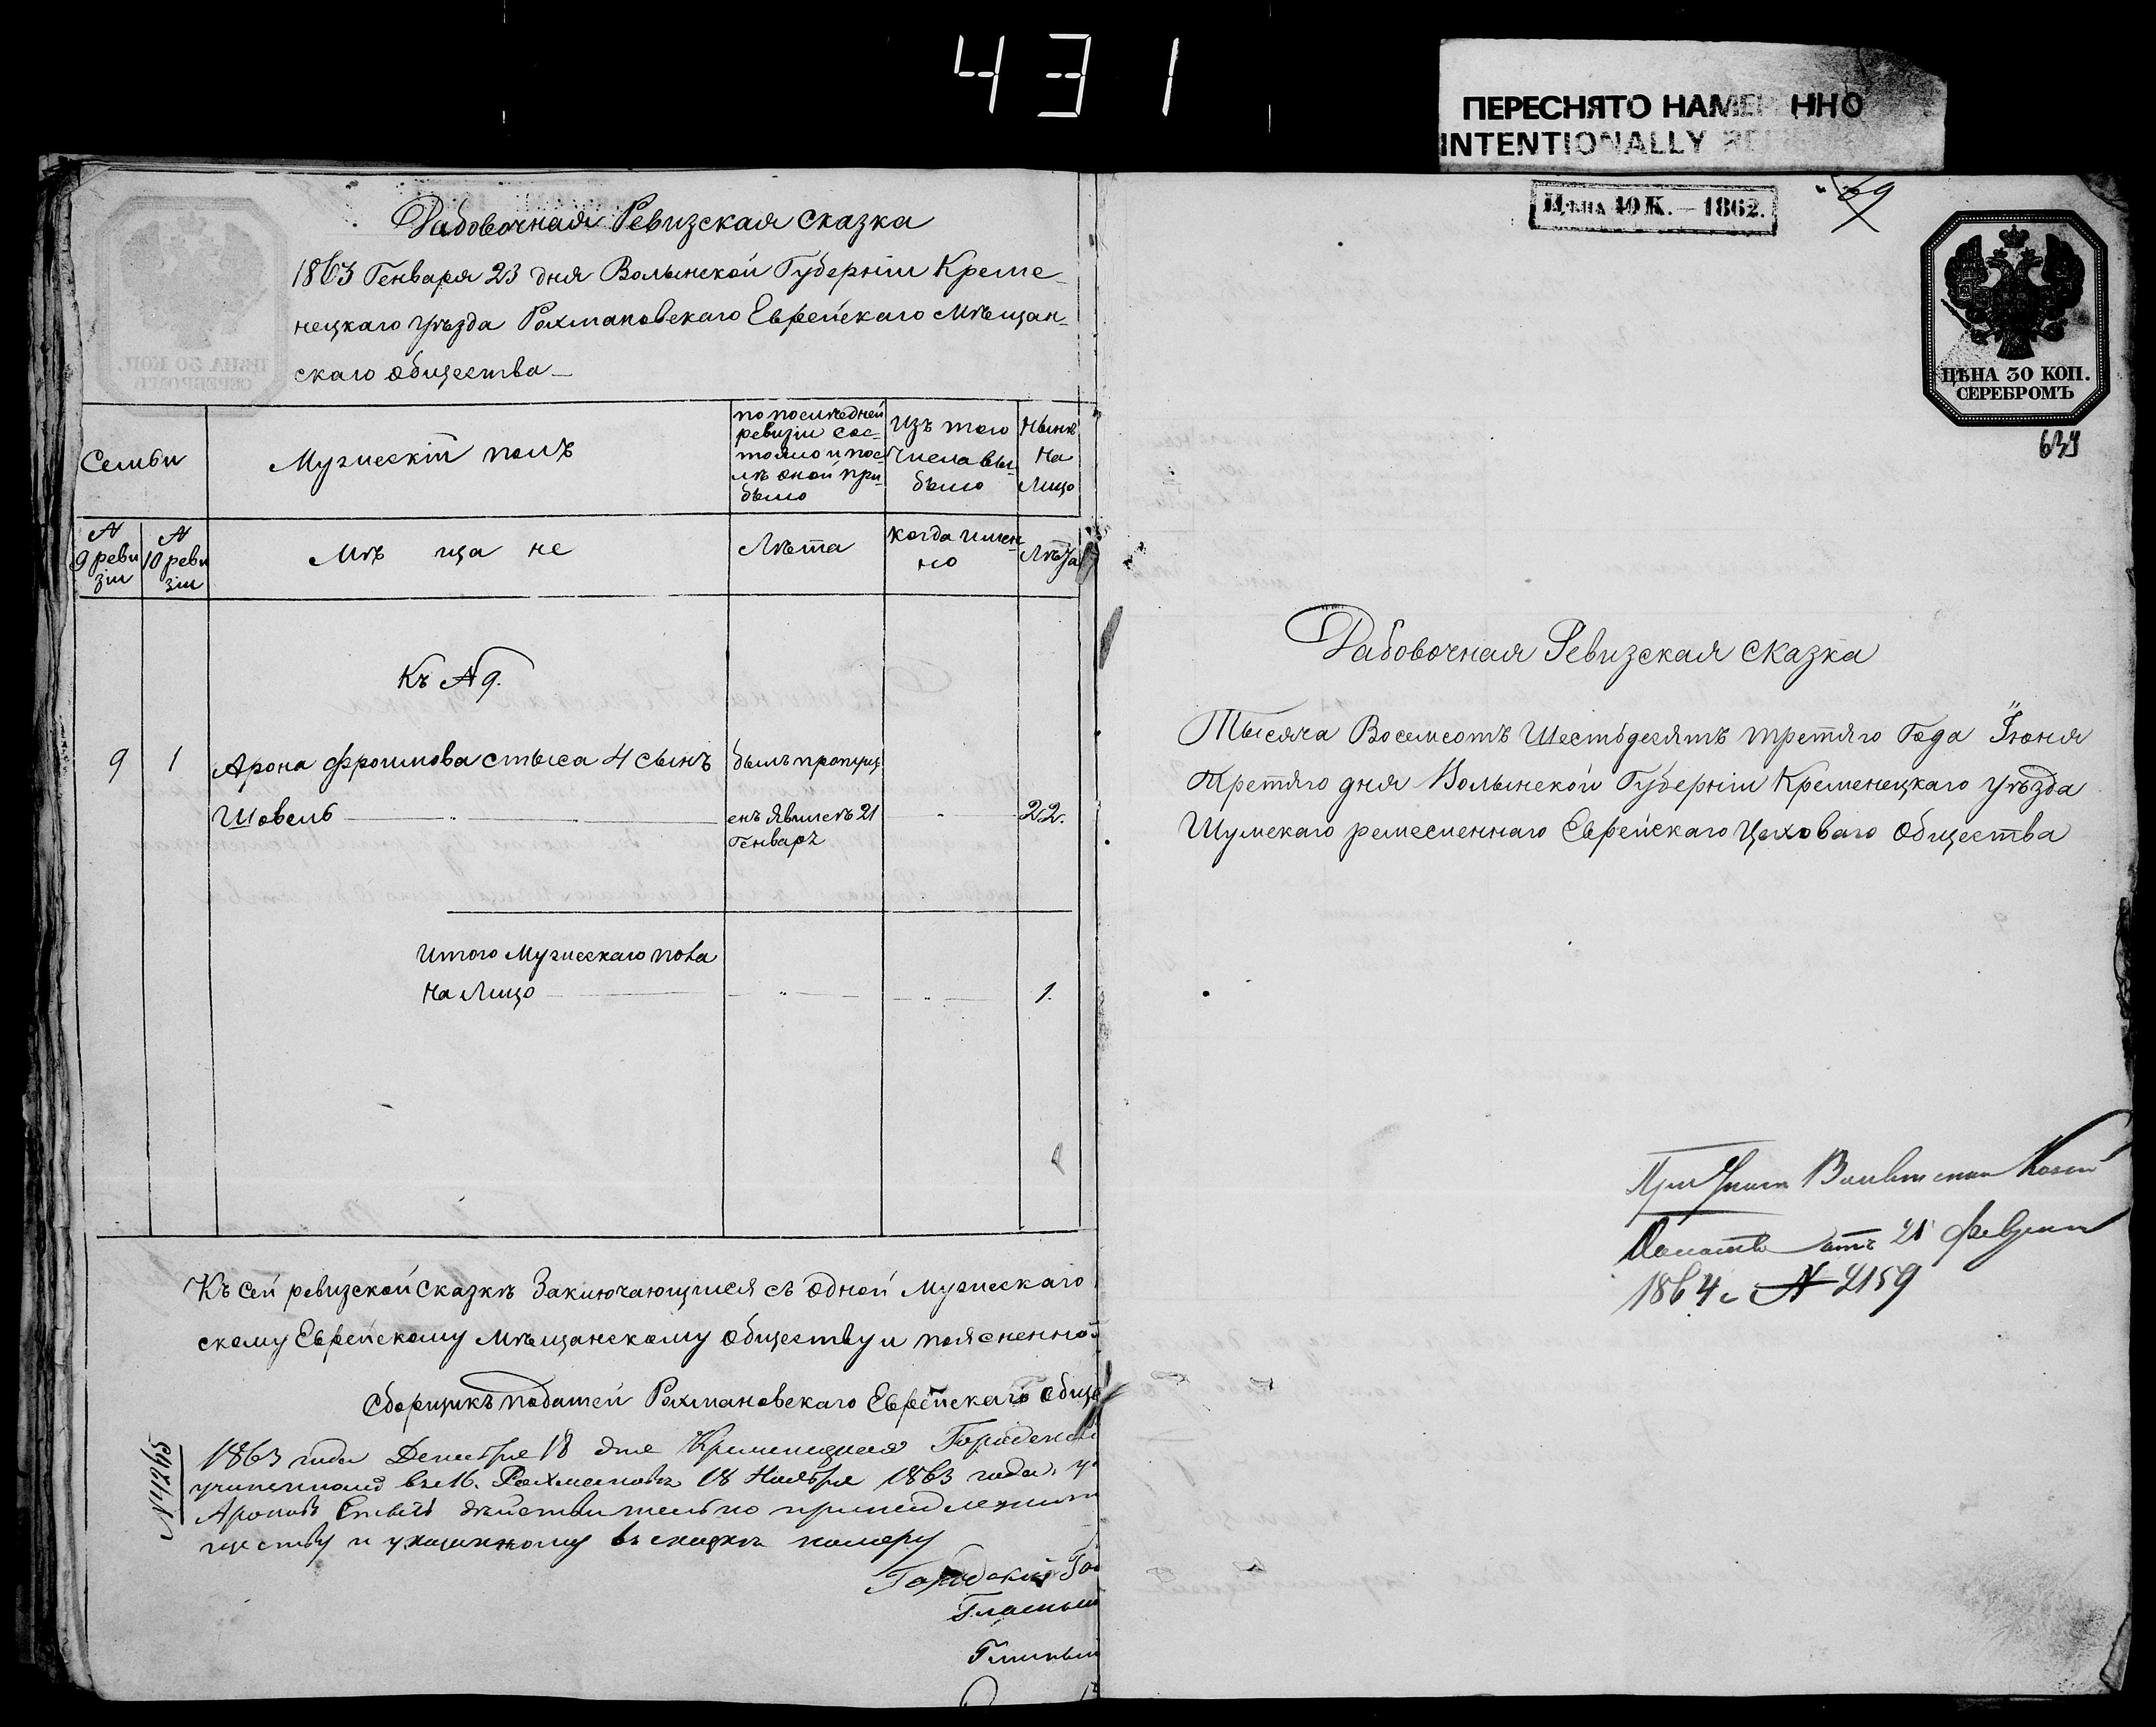 431
ПЕРЕСНЯТО НАМЕР ННО
INTENTIONALLY
Дабовочная Ревизская сказка
1863 Генваря 23 дня Волынской Губерніи Креме-
нецкаго уѣзда Рахмановскаго Еврейскаго Мѣщан-
скаго общества
ЦѢНА 30 КОП.
СЕРЕБРОМЪ
Семьи
Мужескій полъ
по послѣдней
ревизіи сос-
тояло и пос-
лѣ оной при-
было
Изъ того
Числа вы-
было
Нынѣ
На
Лицо
№
9 реви
зіи
№
10 реви
зіи
Мѣ ща не
Лѣта
когда имен
но
Лѣта
Къ № 9.
9 1 Арона Фроимова Стыса 4 сынъ былъ пропущ
Шовель енъ явился 21 22.
Генваря
Итого Мужескаго пола
На Лицо 1.
Къ сей ревизской сказкѣ Заключающиеся съ одной Мужескаго
скому Еврейскому Мѣщанскому обществу и пояснено
Сборщикъ податей Рахмановскаго Еврейскаго обще
№ 4245
1863 года Декабря 18 дня Кременецкая Городска
в м. Рахмановъ 18 Ноября 1863 года, у
дѣйствительно принадлежит
ществу и указанному въ сказкѣ номеру
Городской Го
Гласный
Гласный
Цѣна 40 К. — 1862.
69
ЦѢНА 30 КОП.
СЕРЕБРОМЪ
634
Дабовочная Ревизская сказка
Тысяча Восемсотъ Шестьдесятъ третяго Года Іюня
Третяго дня Волынской Губерніи Кременецкаго уѣзда
Шумскаго ремесленнаго Еврейскаго Цеховаго общества
При Указѣ Волынской Казен
Палаты отъ 21 февраля
1864 г № 2159